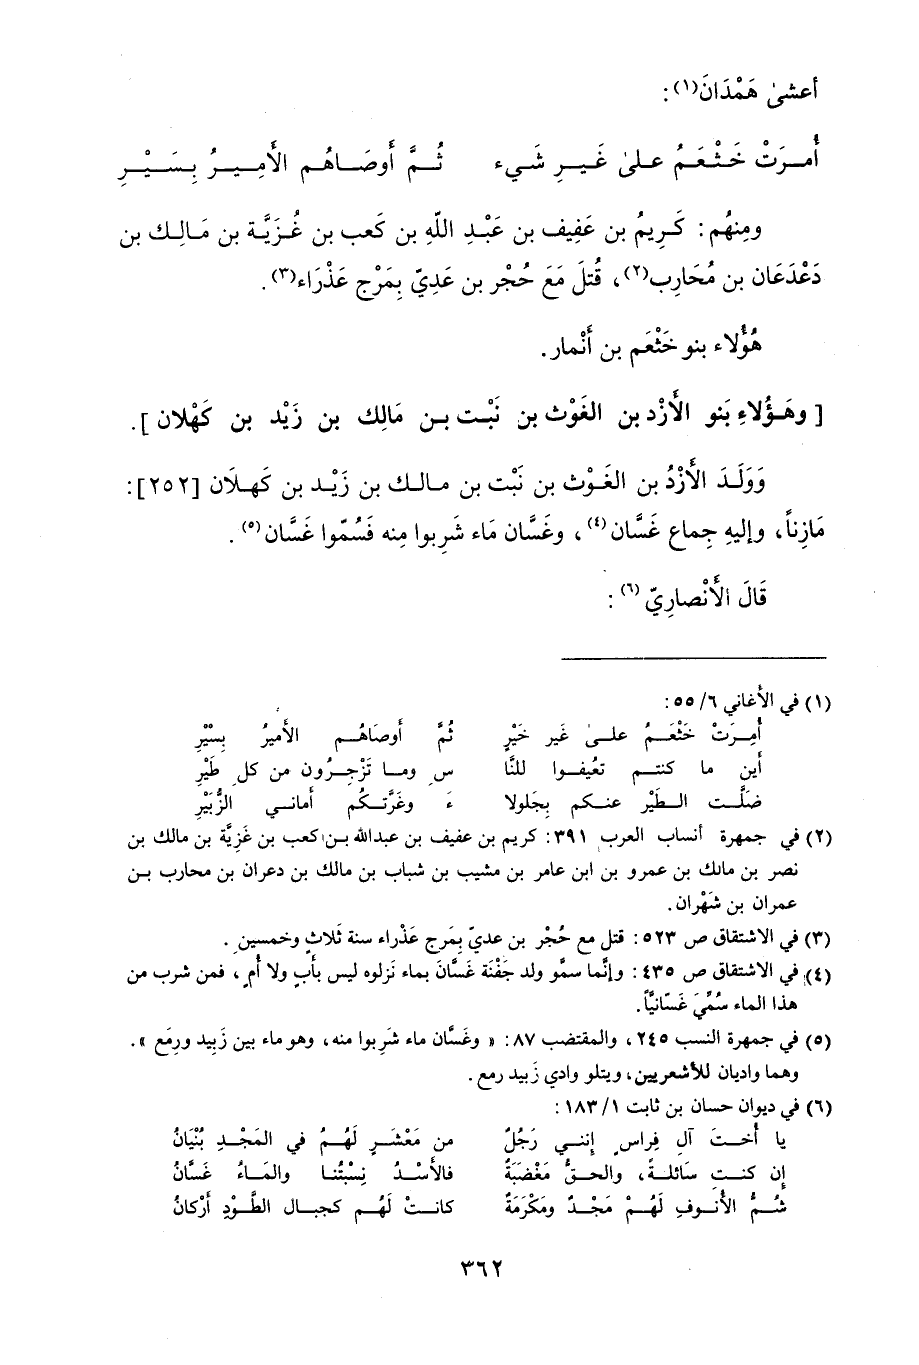 أعشىٰ هَمْدَانَ(١):
أُمِرَتْ خَثْعَمُ علىٰ غَيرِ شَيء ثُمَّ أَوصَاهُم الأَمِيرُ بِسَيْرِ
ومِنهُم: كَرِيمُ بن عَفِيف بن عَبْدِ اللّٰهِ بن كَعب بن غُزَيَّة بن مَالِك بن
دَعْدَعَان بن مُحَارِب(٢)، قُتلَ مَعَ حُجْر بن عَدِيّ بِمَرْج عَذْرَاء(٣).
هُؤُلاء بنو خَثْعَم بن أَنْمار.
[وهَؤُلاءِ بَنو الأَزْد بن الغَوْث بن نَبْت بـن مَالِك بن زَيْد بن كَهْلان].
وَوَلَدَ الأَزْدُ بن الغَوْث بن نَبْت بن مالك بن زَيْد بن كَهلَان [٢٥٢]:
مَازِناً، وإليهِ جِماع غَسَّان(٤)، وغَسَّان مَاء شَرِبوا مِنه فَسُمّوا غَسَّان(٥).
قَالَ الأَنْصارِيّ(٦):
(١) في الأغاني ٥٥/٦:
أُمِرَتْ خَثْعَمُ علىٰ غير خَيْرٍ ثُمَّ أوصَاهُم الأميرُ بِسْيْرِ
أين ما كنتم تعُيفوا للنَّا سِ وما تَزْجِرُون من كلِ طَيْرِ
ضَلَّت الطَيْر عنكم بِجَلولا ءَ وغَرَّتكُم أماني الزُّبَيْرِ
(٢) في جمهرة أنساب العرب ٣٩١: كريم بن عفيف بن عبدالله بن كعب بن غَزِيَّة بن مالك بن
نصر بن مالك بن عمرو بن ابن عامر بن مشيب بن شباب بن مالك بن دعران بن محارب بـن
عمران بن شَهْران.
(٣) في الاشتقاق ص ٥٢٣: قتل مع حُجْر بن عديّ بِمَرج عَذْراء سنة ثَلاثٍ وخمسين.
(٤) في الاشتقاق ص ٤٣٥: وإنَّما سمَّو ولد جَفْنَة غَسَّانَ بماء نَزلوه ليس بأبٍ ولا أُمٍ، فمن شرب من
هذا الماء سُمِّيَ غَسّانيَّاً.
(٥) في جمهرة النسب ٢٤٥، والمقتضب ٨٧: «وغَسَّان ماء شَرِبوا منه، وهو ماء بين زَبِيد ورِمَع».
وهما واديان للأشعريين، ويتلو وادي زَبيد رمع.
(٦) في ديوان حسان بن ثابت ١٨٣/١:
يا أُختَ آلِ فِراسٍ إنني رَجُلٌ من مَعْشَرٍ لَهُمُ في المَجْدِ بُنْيَانُ
إن كنتِ سَائلةً، والحقُّ مَغْضَبَةٌ فالأَسْدُ نِسْبُتنا والمَاءُ غَسَّانُ
شُمُّ الأُنوفِ لَهُمْ مَجْدٌ ومَكْرَمَةٌ كانتْ لَهُم كجبال الطَّوْدِ أرْكانُ
٣٦٢